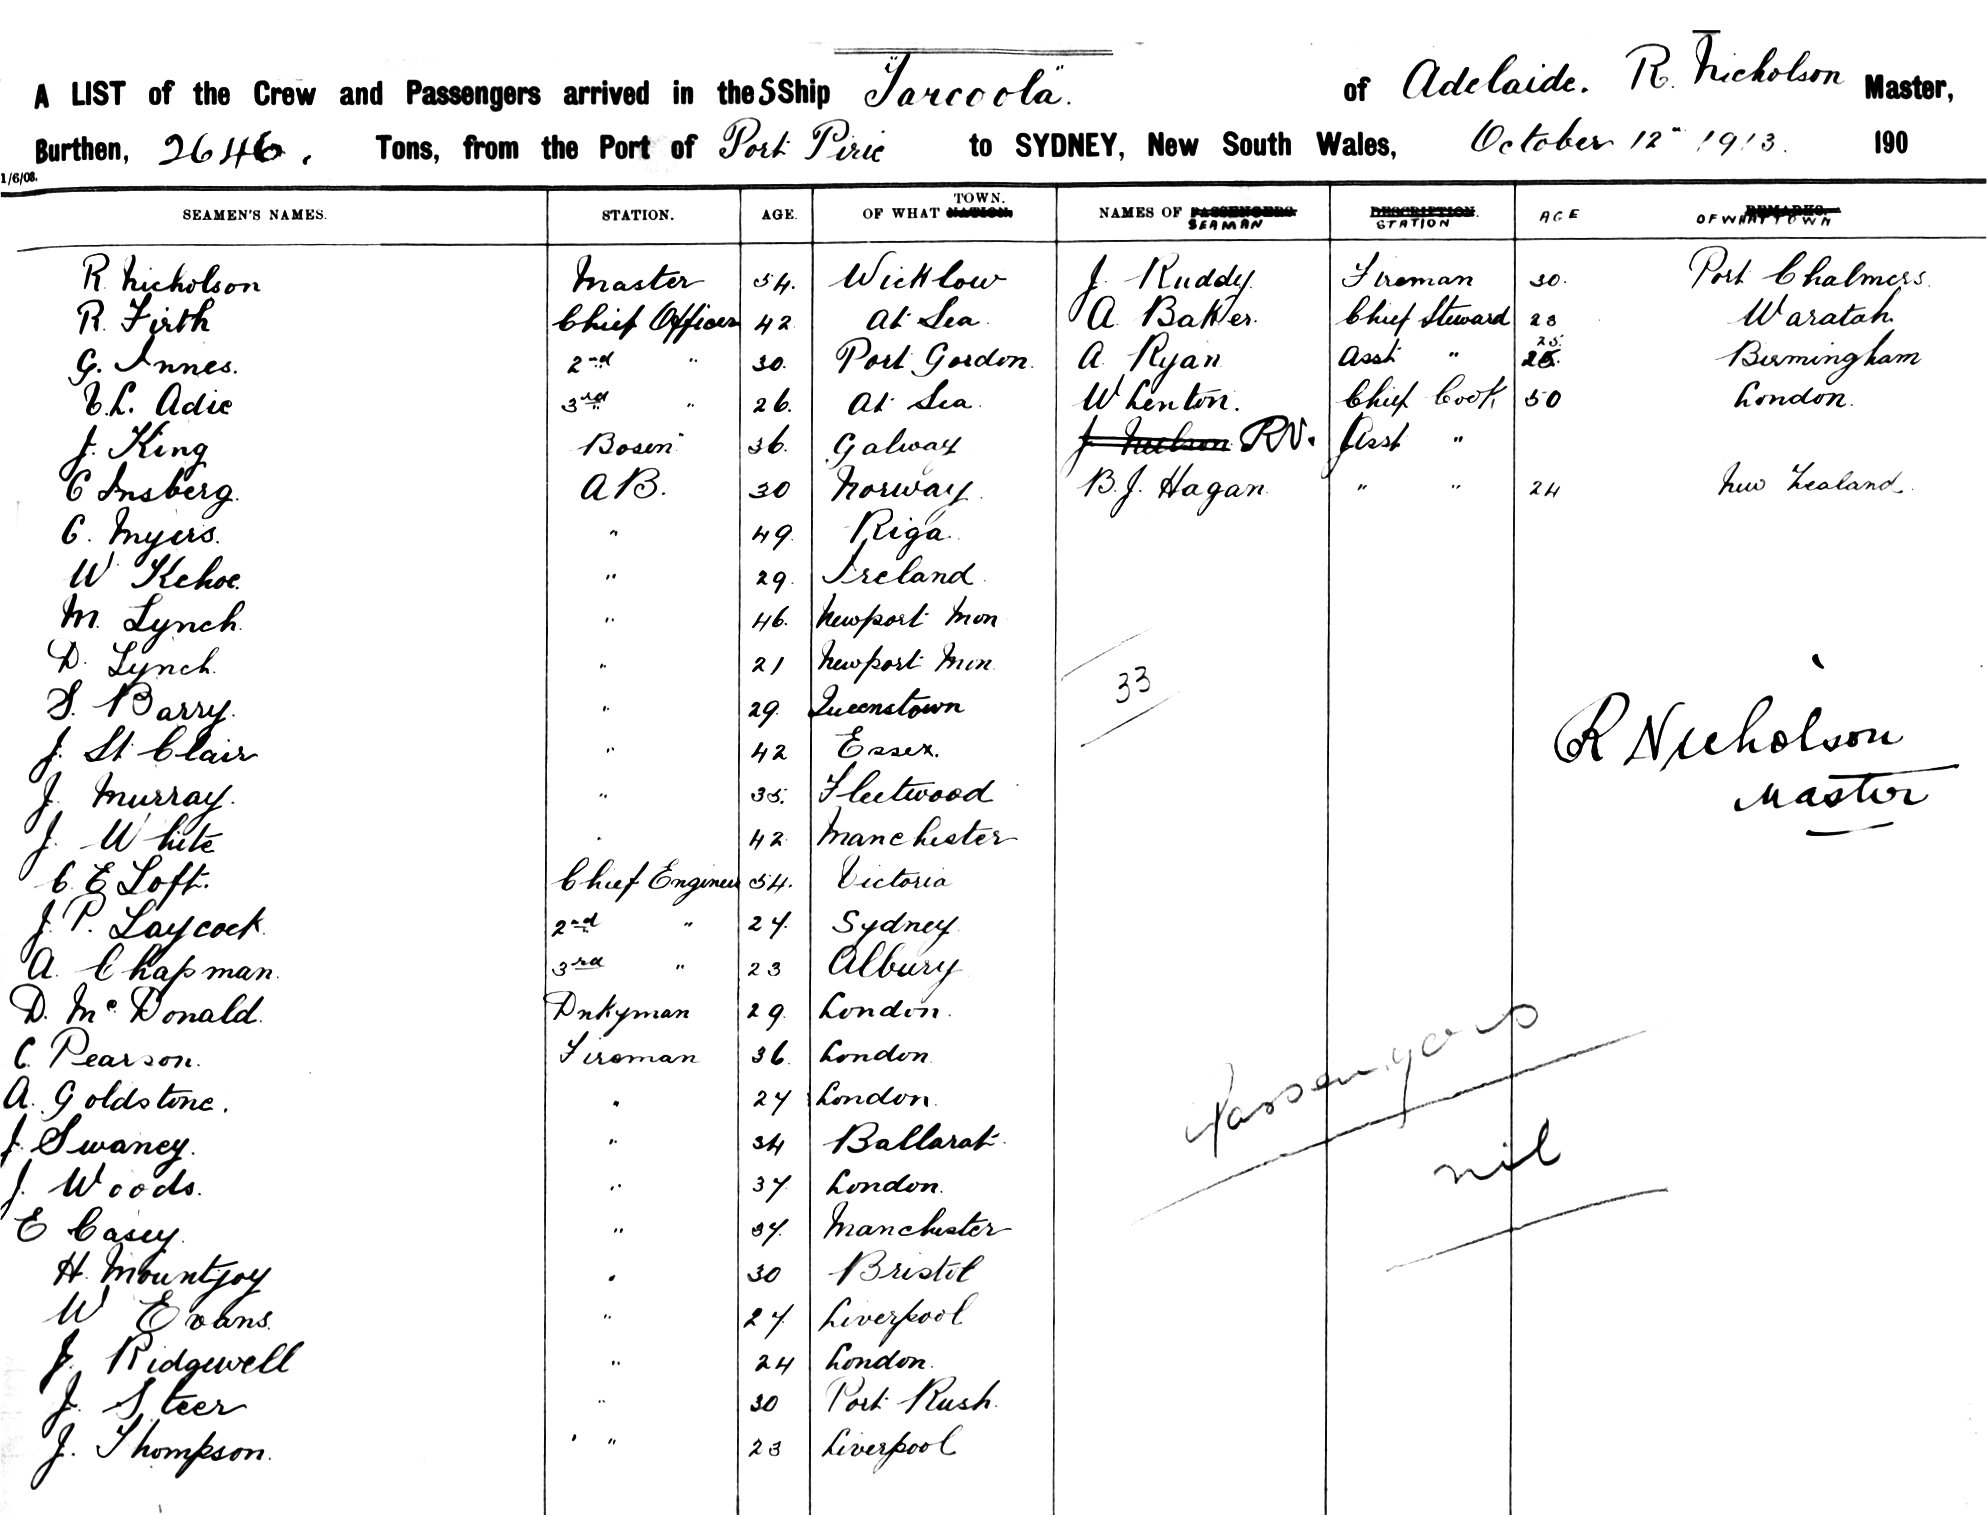 A LIST of the Crew and Passengers arrived in the SShip "Tarcoola". of Adelaide. R. Nicholson Master,
Burthen, 2646. Tons, from the Port of Port Pirie to SYDNEY, New South Wales, October 12" 1913. 190
1/6/08.
SEAMEN'S NAMES. STATION. AGE. OF WHAT NATION. TOWN. NAMES OF PASSENGERS SEAMAN DESCRIPTION. STATION AGE REMARKS. OF WHAT TOWN
R. Nicholson Master 54. Wicklow J. Ruddy. Fireman 30. Port Chalmers.
R. Firth Chief Officer 42 At Sea. A Baker. Chief Steward 23 Waratah.
G. Innes. 2nd " 30. Port Gordon. A Ryan Asst " 25. 25. Birmingham
C.L. Adie 3rd " 26. At Sea. W Lenton. Chief Cook, 50 London.
J. King Bosen" 36. Galway J Neilson RN. Asst "
C Insberg. AB. 30 Norway. B.J. Hagan " " 24 New Zealand.
C. Myers. " 49. Riga.
W Kehoe. " 29. Ireland.
M. Lynch. " 46. Newport Mon
D. Lynch. " 21 Newport Mon. 33
S. Barry. " 29. Queenstown
J. St Clair " 42 Essex. R Nicholson
J. Murray. " 35. Fleetwood Master
J. White " 42 Manchester
C. E Loft. Chief Engineer 54. Victoria
J. P. Laycock. 2nd " 27. Sydney
A. Chapman. 3rd " 23 Albury
D. Mc Donald. Dnkyman 29. London.
C. Pearson. Fireman 36. London. Passengers
A. Goldstone. " 27 London.
J. Swaney. " 34 Ballarat. nil
J. Woods. " 37. London.
E Casey. " 37. Manchester
H. Mountjoy " 30 Bristol
W Evans. " 27. Liverpool
J. Ridgewell " 24 London.
J. Steer " 30 Port Rush.
J. Thompson. " 23 Liverpool